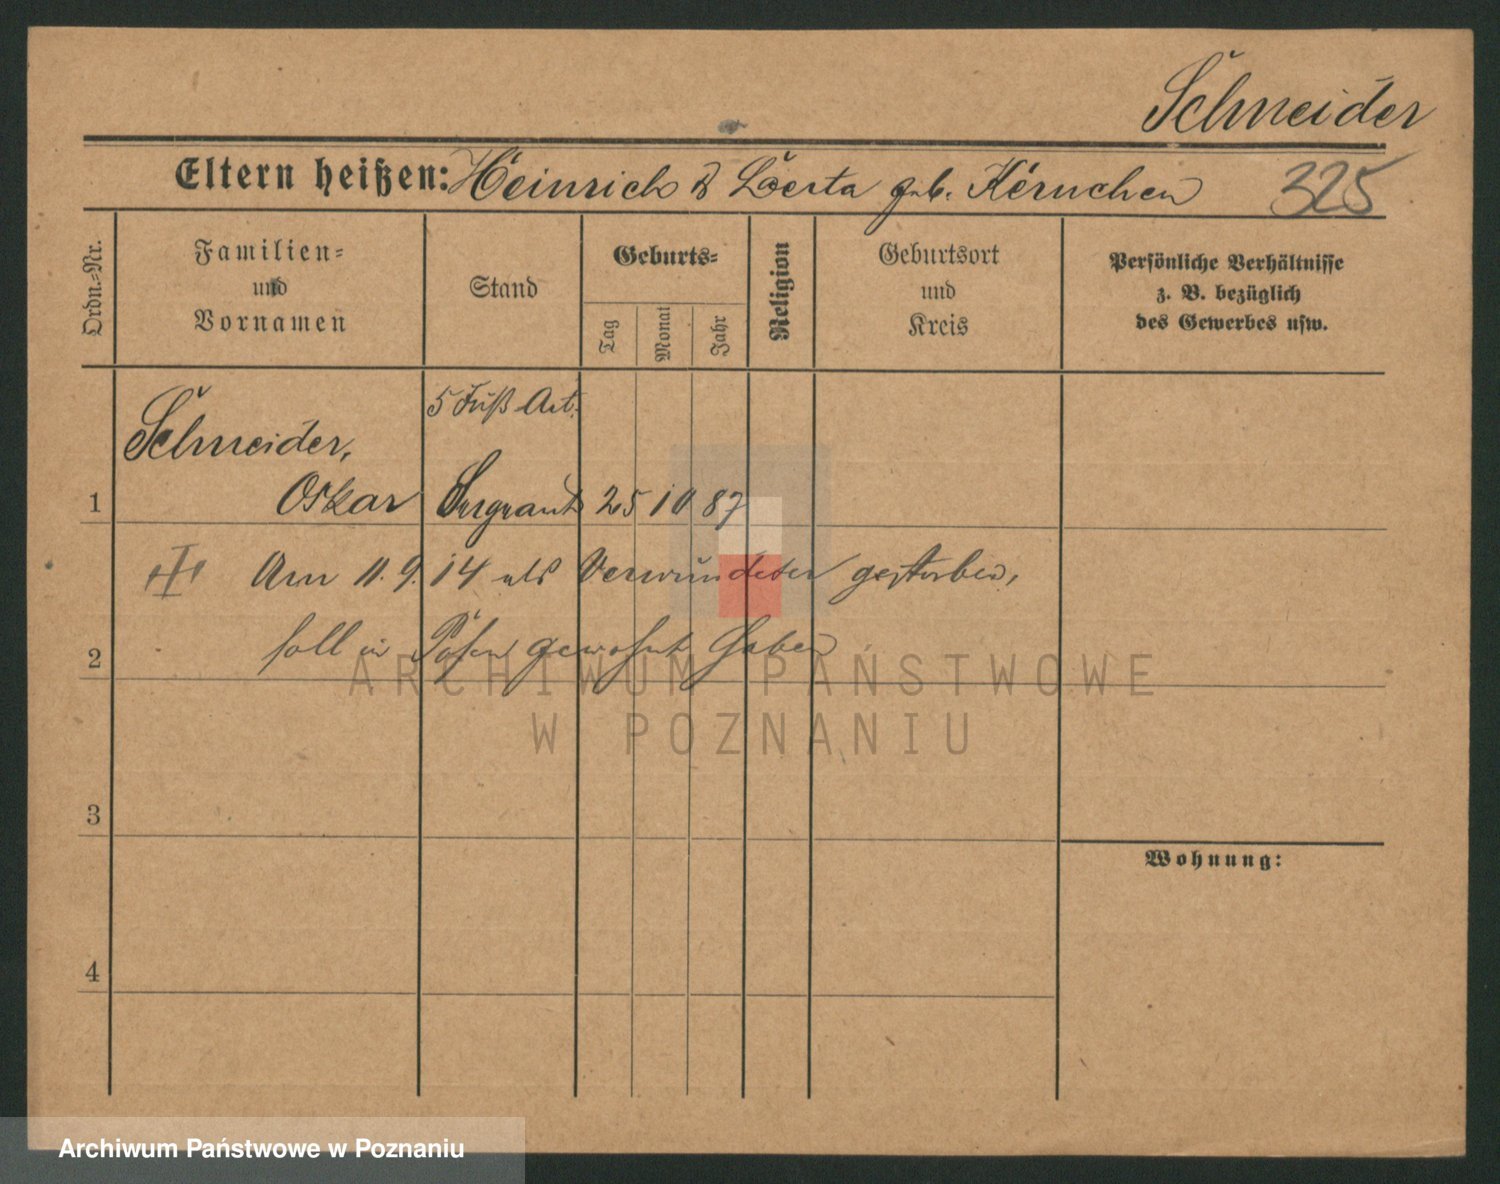 Schneider
Eltern heißen: Heinrich & geb. Kernchen 325
Ordn.-Nr.
Familien-
und
Vornamen
Stand
Geburts-
Tag
Monat
Jahr
Religion
Geburtsort
und
Kreis
Persönliche Verhältnisse
z. B. bezüglich
des Gewerbes usw.
5 Fuß Art.
Schneider,
1 Oskar Sergeant 25 10 87
Am 11. 9. 14 als Verwundeter gestorben,
soll in Posen gewohnt haben
2
3
Wohnung:
4
ARCHIWUM PAŃSTWOWE
W POZNANIU
Archiwum Państwowe w Poznaniu